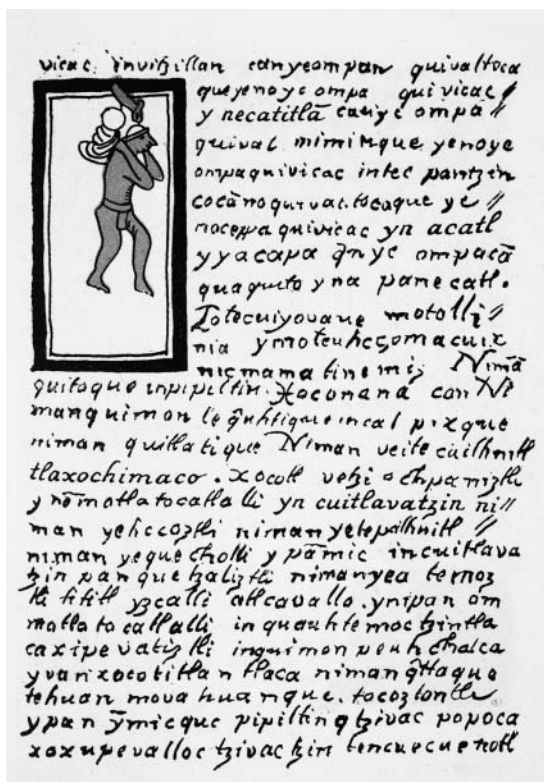 vicac inviҕillan canyeompan quivaltoca
queyenoye ompa quivicac
y necatitlā canyc ompa
quival miminque yenoye
ompaquivicac intec pantzin
cocānoquivaltocaque ye
noceppa quivicac yn acatl
yyacapa
quaquito yna panecatl.
Totecuiyovane motolli
nia
nicmama tinemi Nimā
quitoque inpipiltin Xoconana can Ni
man quimon incal pixque
niman quitlatique Niman veitecuilhuitl
tlaxochimaco. xocotl vetzi ochpaniztli
ynēmotlatocatlalli yn cuitlavatzin ni
man yehecoztli nimanyetepilhuitl
niman yequecholli ypāmic incuitlava
tzin panquetzaliztli nimanyea temoz
tli tititl yzcalli atlcavallo. ynipan om
motlatocatlalli inquauhtemoctzintla
caxipevaliztli inquimon peuh chalca
yvan xocotitlan tlaca niman
tehuan mova huanque. tocoztontli
ypan ȳmicque pipiltin q tzivac popoca
xoxupevalloc tzivactzin tencuecuenotl